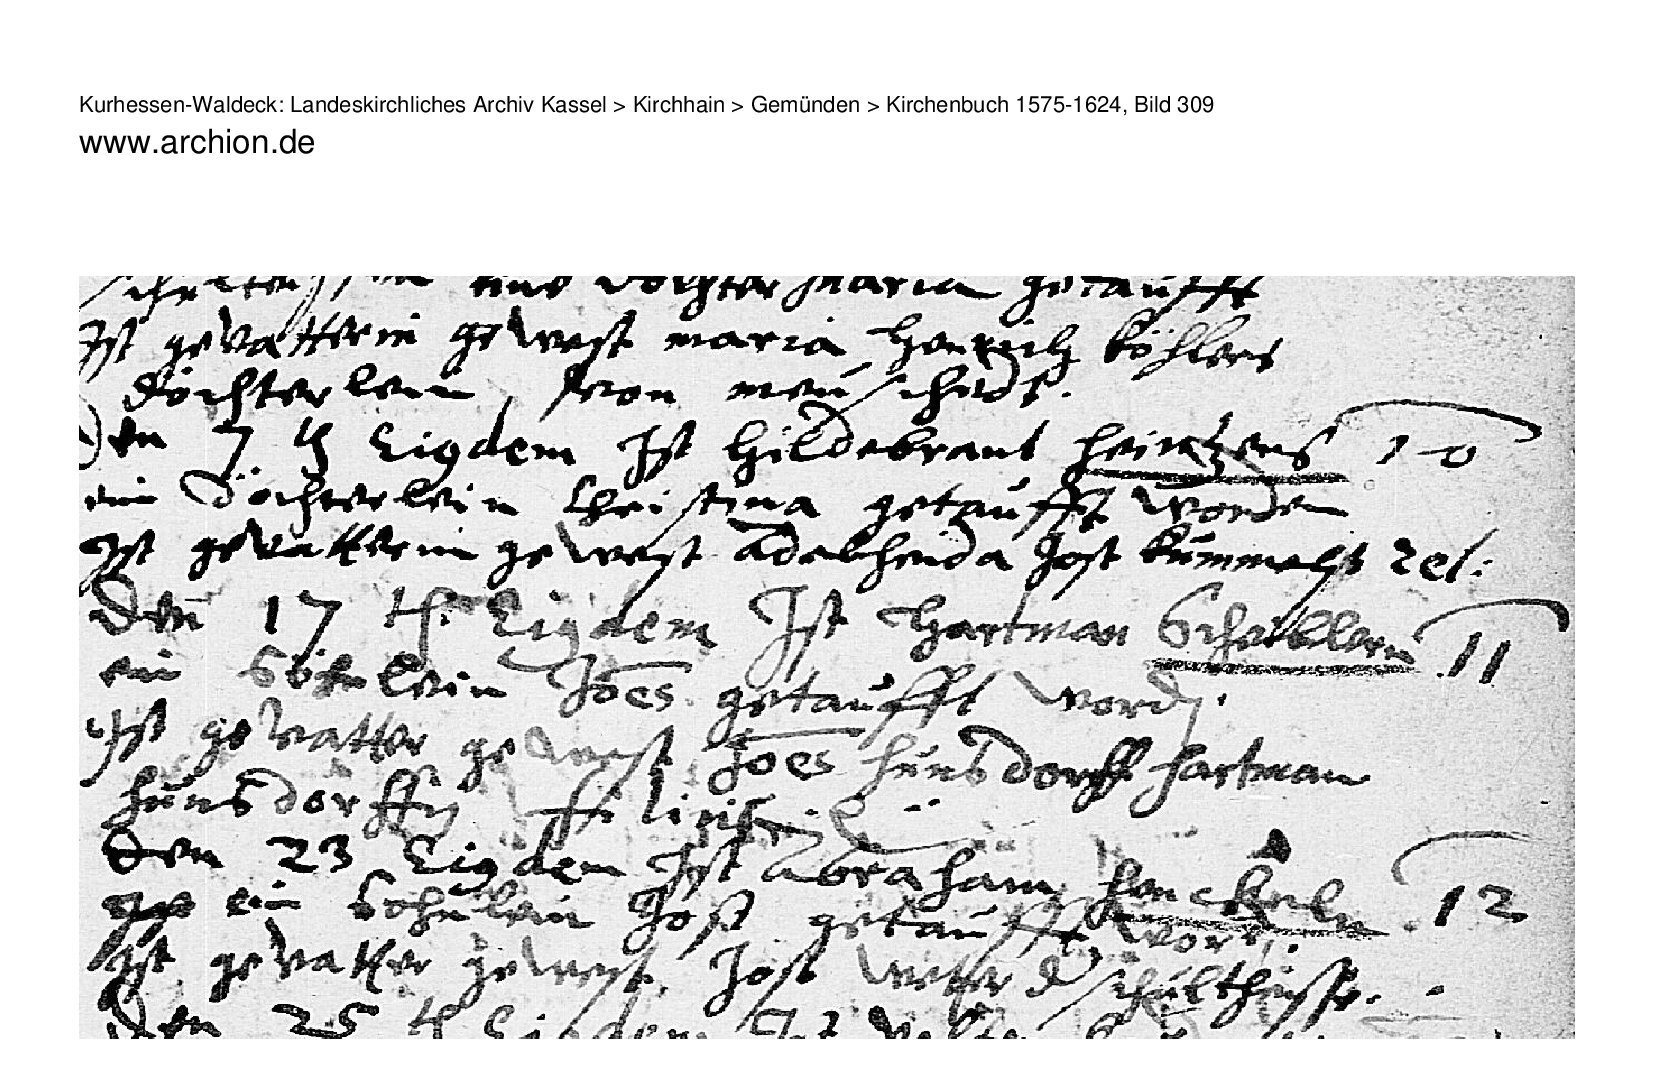 Kurhessen-Waldeck: Landeskirchliches Archiv Kassel > Kirchhain > Gemünden > Kirchenbuch 1575-1624, Bild 309
www.archion.de
eine dochter Maria getaufft
Ist gevatterin gewest maria Henrich köhlers
döchterlein
Den 7 th Eigdem Ist Hildebrant heintzens 10
ein döchterlein Christina getaufft worden
Ist gevatterin gewest Adelheida Jost kümmels rel:
Den 17 th. Eigdem Ist Hartman 11
ein Söhnlein Joes getaufft word.
Ist gevatter gewest Joes hünsdorff hartman
hünsdorffs
Den 23 Eigdem Ist Abraham henckeln 12
ein Söhnlein Jost getaufft word.
Ist gevatter gewest Jost schultheisse.
Den 25 th Eigdem Ist